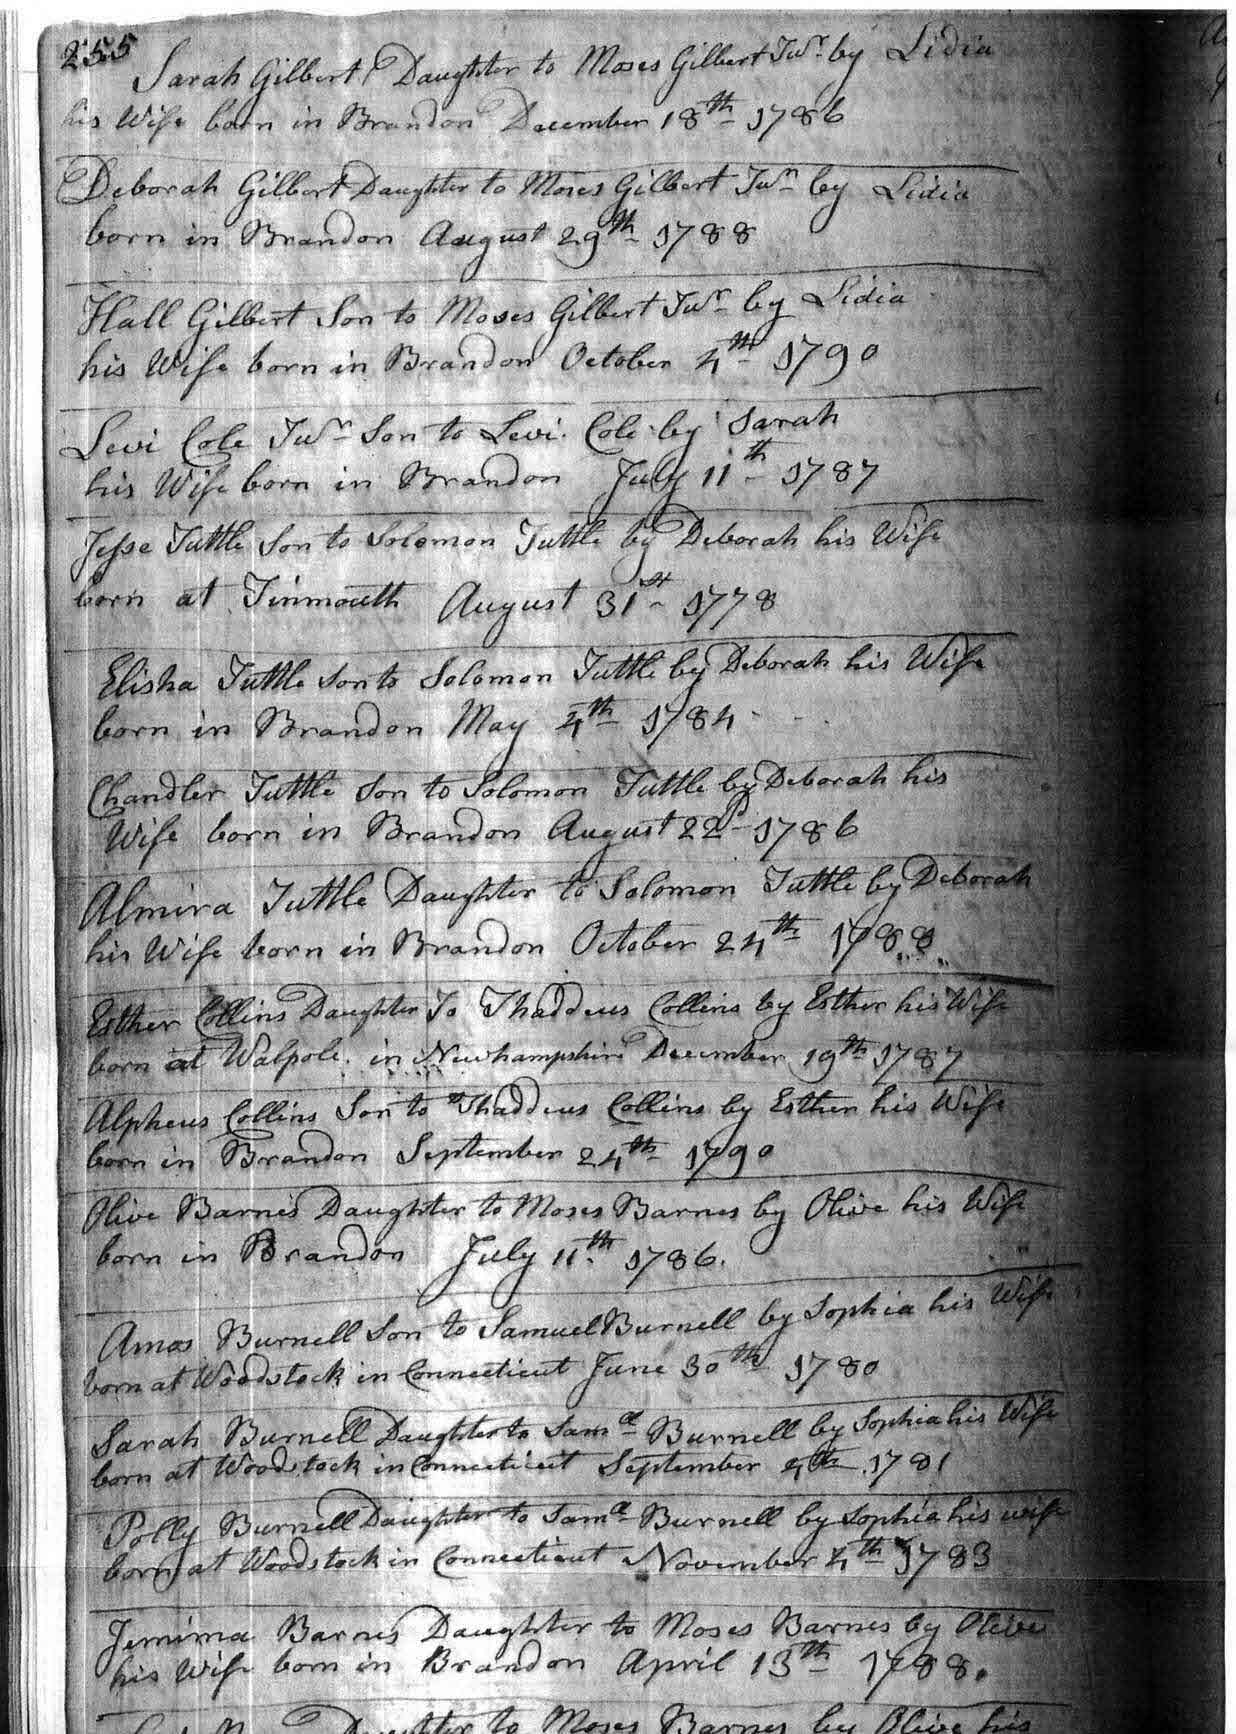 255
Sarah Gilbert Daughter to Moses Gilbert Junr by Lidia
his Wife born in Brandon December 18th 1786
Deborah Gilbert Daughter to Moses Gilbert Junr by Lidia
born in Brandon August 29th 1788
Hall Gilbert Son to Moses Gilbert Junr by Lidia
his Wife born in Brandon October 4th 1790
Levi Cole Junr Son to Levi Cole by Sarah
his Wife born in Brandon July 11th 1787
Jesse Tuttle Son to Solomon Tuttle by Deborah his Wife
born at Tinmouth August 31st 1778
Elisha Tuttle Son to Solomon Tuttle by Deborah his Wife
born in Brandon May 4th 1784
Chandler Tuttle Son to Solomon Tuttle by Deborah his
Wife born in Brandon August 22d 1786
Almira Tuttle Daughter to Solomon Tuttle by Deborah
his Wife born in Brandon October 24th 1788
Esther Collins Daughter To Thaddeus Collins by Esther his Wife
born at Walpole in Newhampshire December 19th 1787
Alpheus Collins Son to Thaddeus Collins by Esther his Wife
born in Brandon September 24th 1790
Olive Barnes Daughter to Moses Barnes by Olive his Wife
born in Brandon July 11th 1786.
Amos Burnell Son to Samuel Burnell by Sophia his Wife
born at Woodstock in Connecticut June 30th 1780
Sarah Burnell Daughter to Saml Burnell by Sophia his Wife
born at Woodstock in Connecticut September 4th 1781
Polly Burnell Daughter to Saml Burnell by Sophia his wife
born at Woodstock in Connecticut November 4th 1783
Jemima Barnes Daughter to Moses Barnes by Olive
his Wife born in Brandon April 13th 1788.
Daughter to Moses Barnes by Olive his